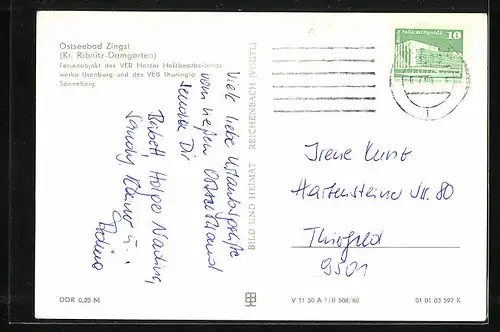 Ostseebad Zingst
(Kr. Ribnitz-Damgarten)
Ferienobjekt des VEB Harzer Holzbearbeitungs-
werke Ilsenburg und des VEB Thuringia
Sonneberg
10
Viele liebe Urlaubsgrüße
vom heißen Ostseestrand
senden Dir
Babett, Holger, Nadine,
Sandy, Rainer u.
BILD UND HEIMAT REICHENBACH (VOGTL)
Irene Kunt
Hartensteiner Str. 80
Thierfeld
9501
DDR 0,25 M
V 11 50 A 1/B 508/80
01 01 03 597 K